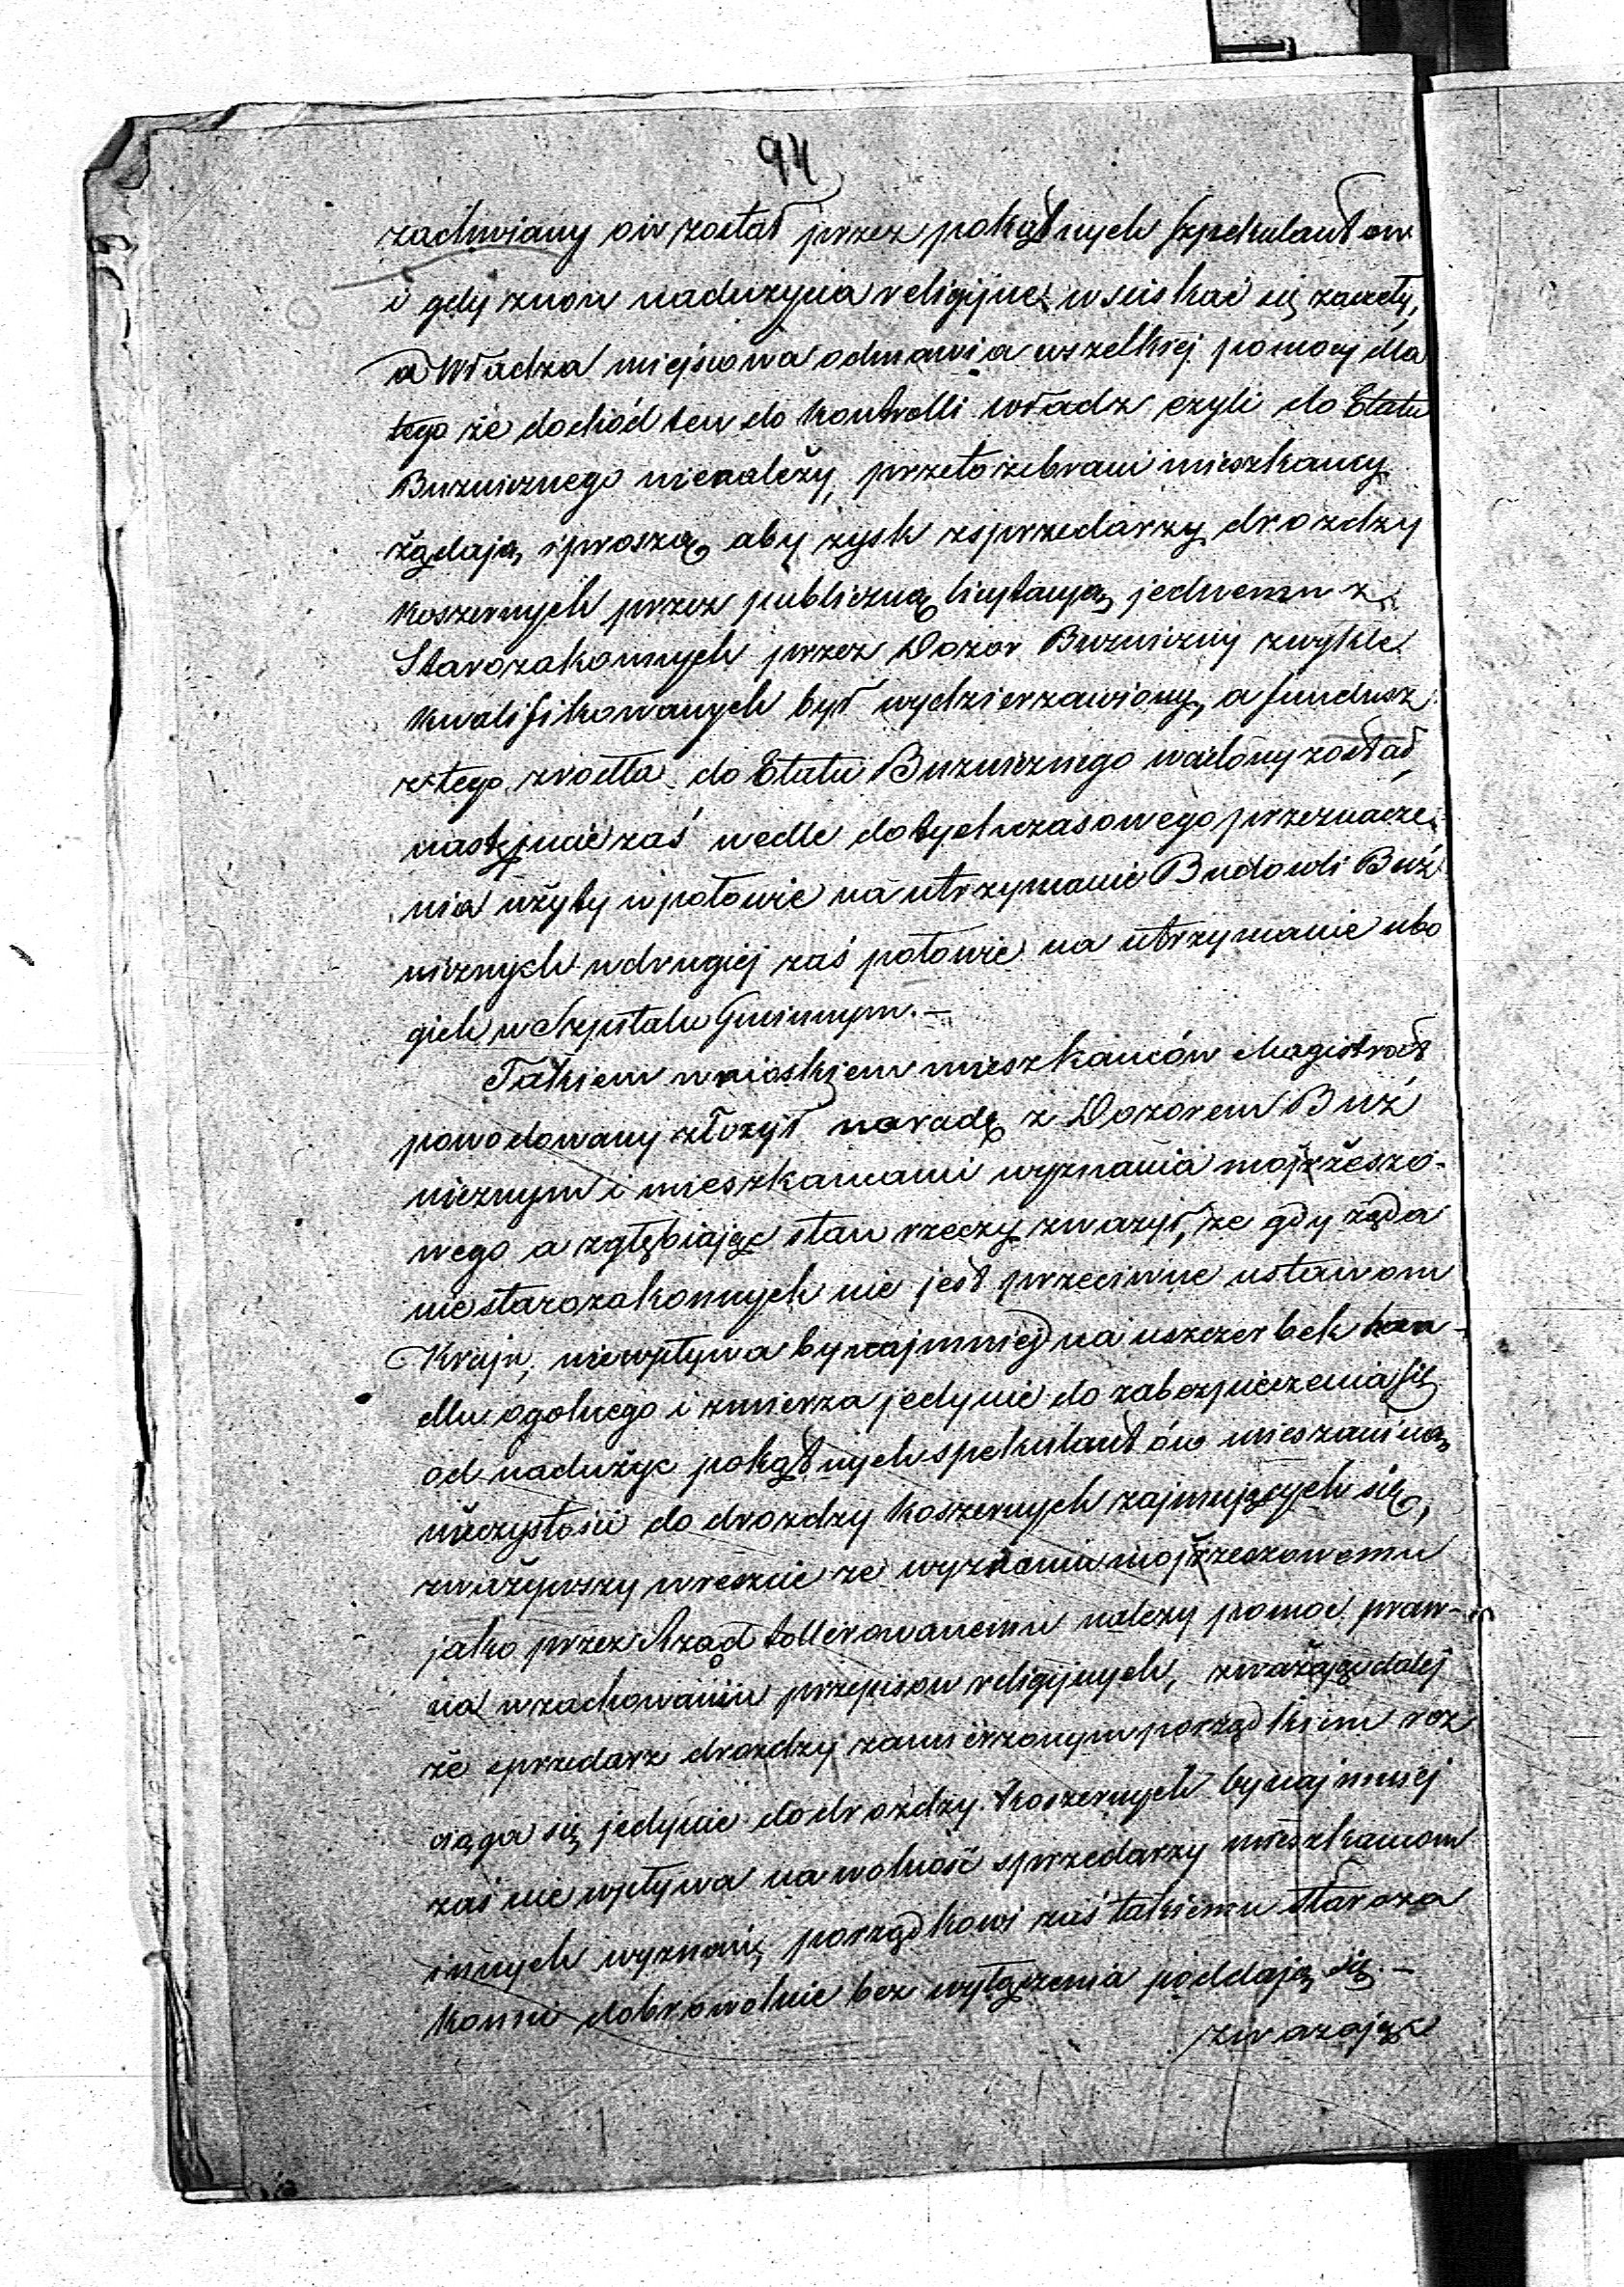 94
zachwiany on został przez pokątnych szpekulantow
i gdy znow nadużycia religijne wciskać się zaczeły,
a Władza miejscowa odmawia wszelkiej pomocy dla
tego że dochód ten do kontrolli władz czyli do Etatu
Buznicznego nienależy, przeto zebrani mieszkancy
żądają i proszą, aby zysk zsprzedarzy drozdzy
koszernych przez publiczną licytacyą jednemu z
Starozakonnych przez Dozor Buzniczny zwykle
kwalifikowanych był wydzierzawiony, a fundusz
z tego zrodła do Etatu Buzniczego wcielony został,
następnie zaś wedle dotychczasowego przeznacze
nia użyty w połowie na utrzymanie Budowli Buź
nicznych w drugiej zaś połowie na utrzymanie ubo
gich w Szpitalu Gminnym.—
Takiem wnioskiem mieszkańców Magistrat
powodowany złożył naradę z Dozorem Buź
nicznym i mieszkancami wyznania mojżeszo-
wego a zgłębiając stan rzeczy zwazył, że gdy żąda
nie starozakonnych nie jest przeciwne ustawom
Kraju, niewpływa bynajmniej na uszczerbek han-
dlu ogolnego i zmierza jedynie do zabezpieczenia się
od nadużyc pokątnych spekulantów mieszaniną
nieczystosci do drozdzy koszernych zajmujących się,
zważywszy wreszcie ze wyznaniu mojżeszowemu
jako przez Rząd tollerowanemu nalezy pomoc praw-
na w zachowaniu przepisow religijnych, zważając dalej
że sprzedarz drozdzy zamierzonym porządkiem roz
ciąga się jedynie do drożdzy koszernych bynajmniej
zaś nie wpływa na wolność sprzedarzy mieszkancom
innych wyznań, porządkowi zaś takiemu Staroza
konni dobrowolnie bez wyłączenia poddają się.—
zwazając